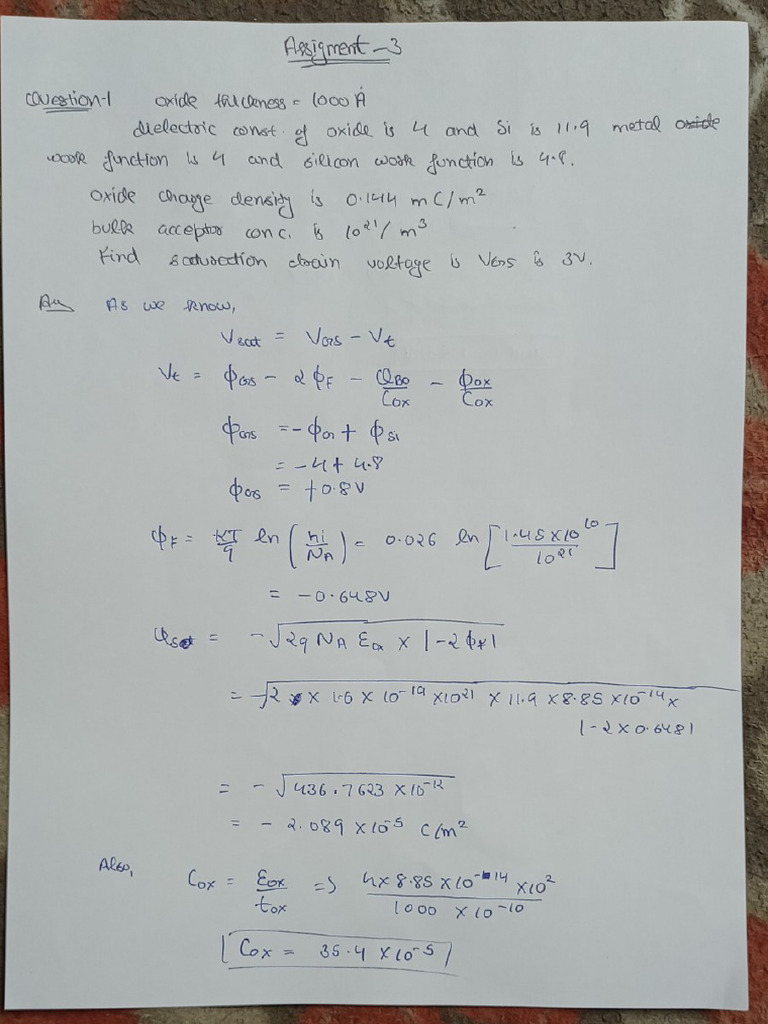 Assigment-3
Question-1 oxide thickness = 1000 Å
dielectric const. of oxide is 4 and Si is 11.9 metal oxide
work function is 4 and silicon work function is 4.8.
oxide charge density is 0.144 mC/m²
bulk acceptor conc. is 10²¹/m³
Find saturaction drain voltage is VGS is 3V.
Ans As we know,
Vsat = VGS - Vt
Vt = ΦGS - 2ΦF - QBO/COX - ΦOX/COX
ΦGS = -ΦM + ΦSi
= -4 + 4.8
ΦGS = +0.8V
ΦF = KT/q ln (ni/NA) = 0.026 ln [1.45×10¹⁰/10²¹]
= -0.648V
= -√2q NA × |-2ΦF|
= -√2 × 1.6 × 10⁻¹⁹ × 10²¹ × 11.9 × 8.85 × 10⁻¹⁴ ×
|-2×0.648|
= -√436.7623 × 10⁻¹²
= -2.089 × 10⁻⁵ C/m²
Also,
Cox = Eox/tox => 4×8.85×10⁻¹⁴ ×10²/1000 × 10⁻¹⁰
Cox = 35.4 × 10⁻⁵